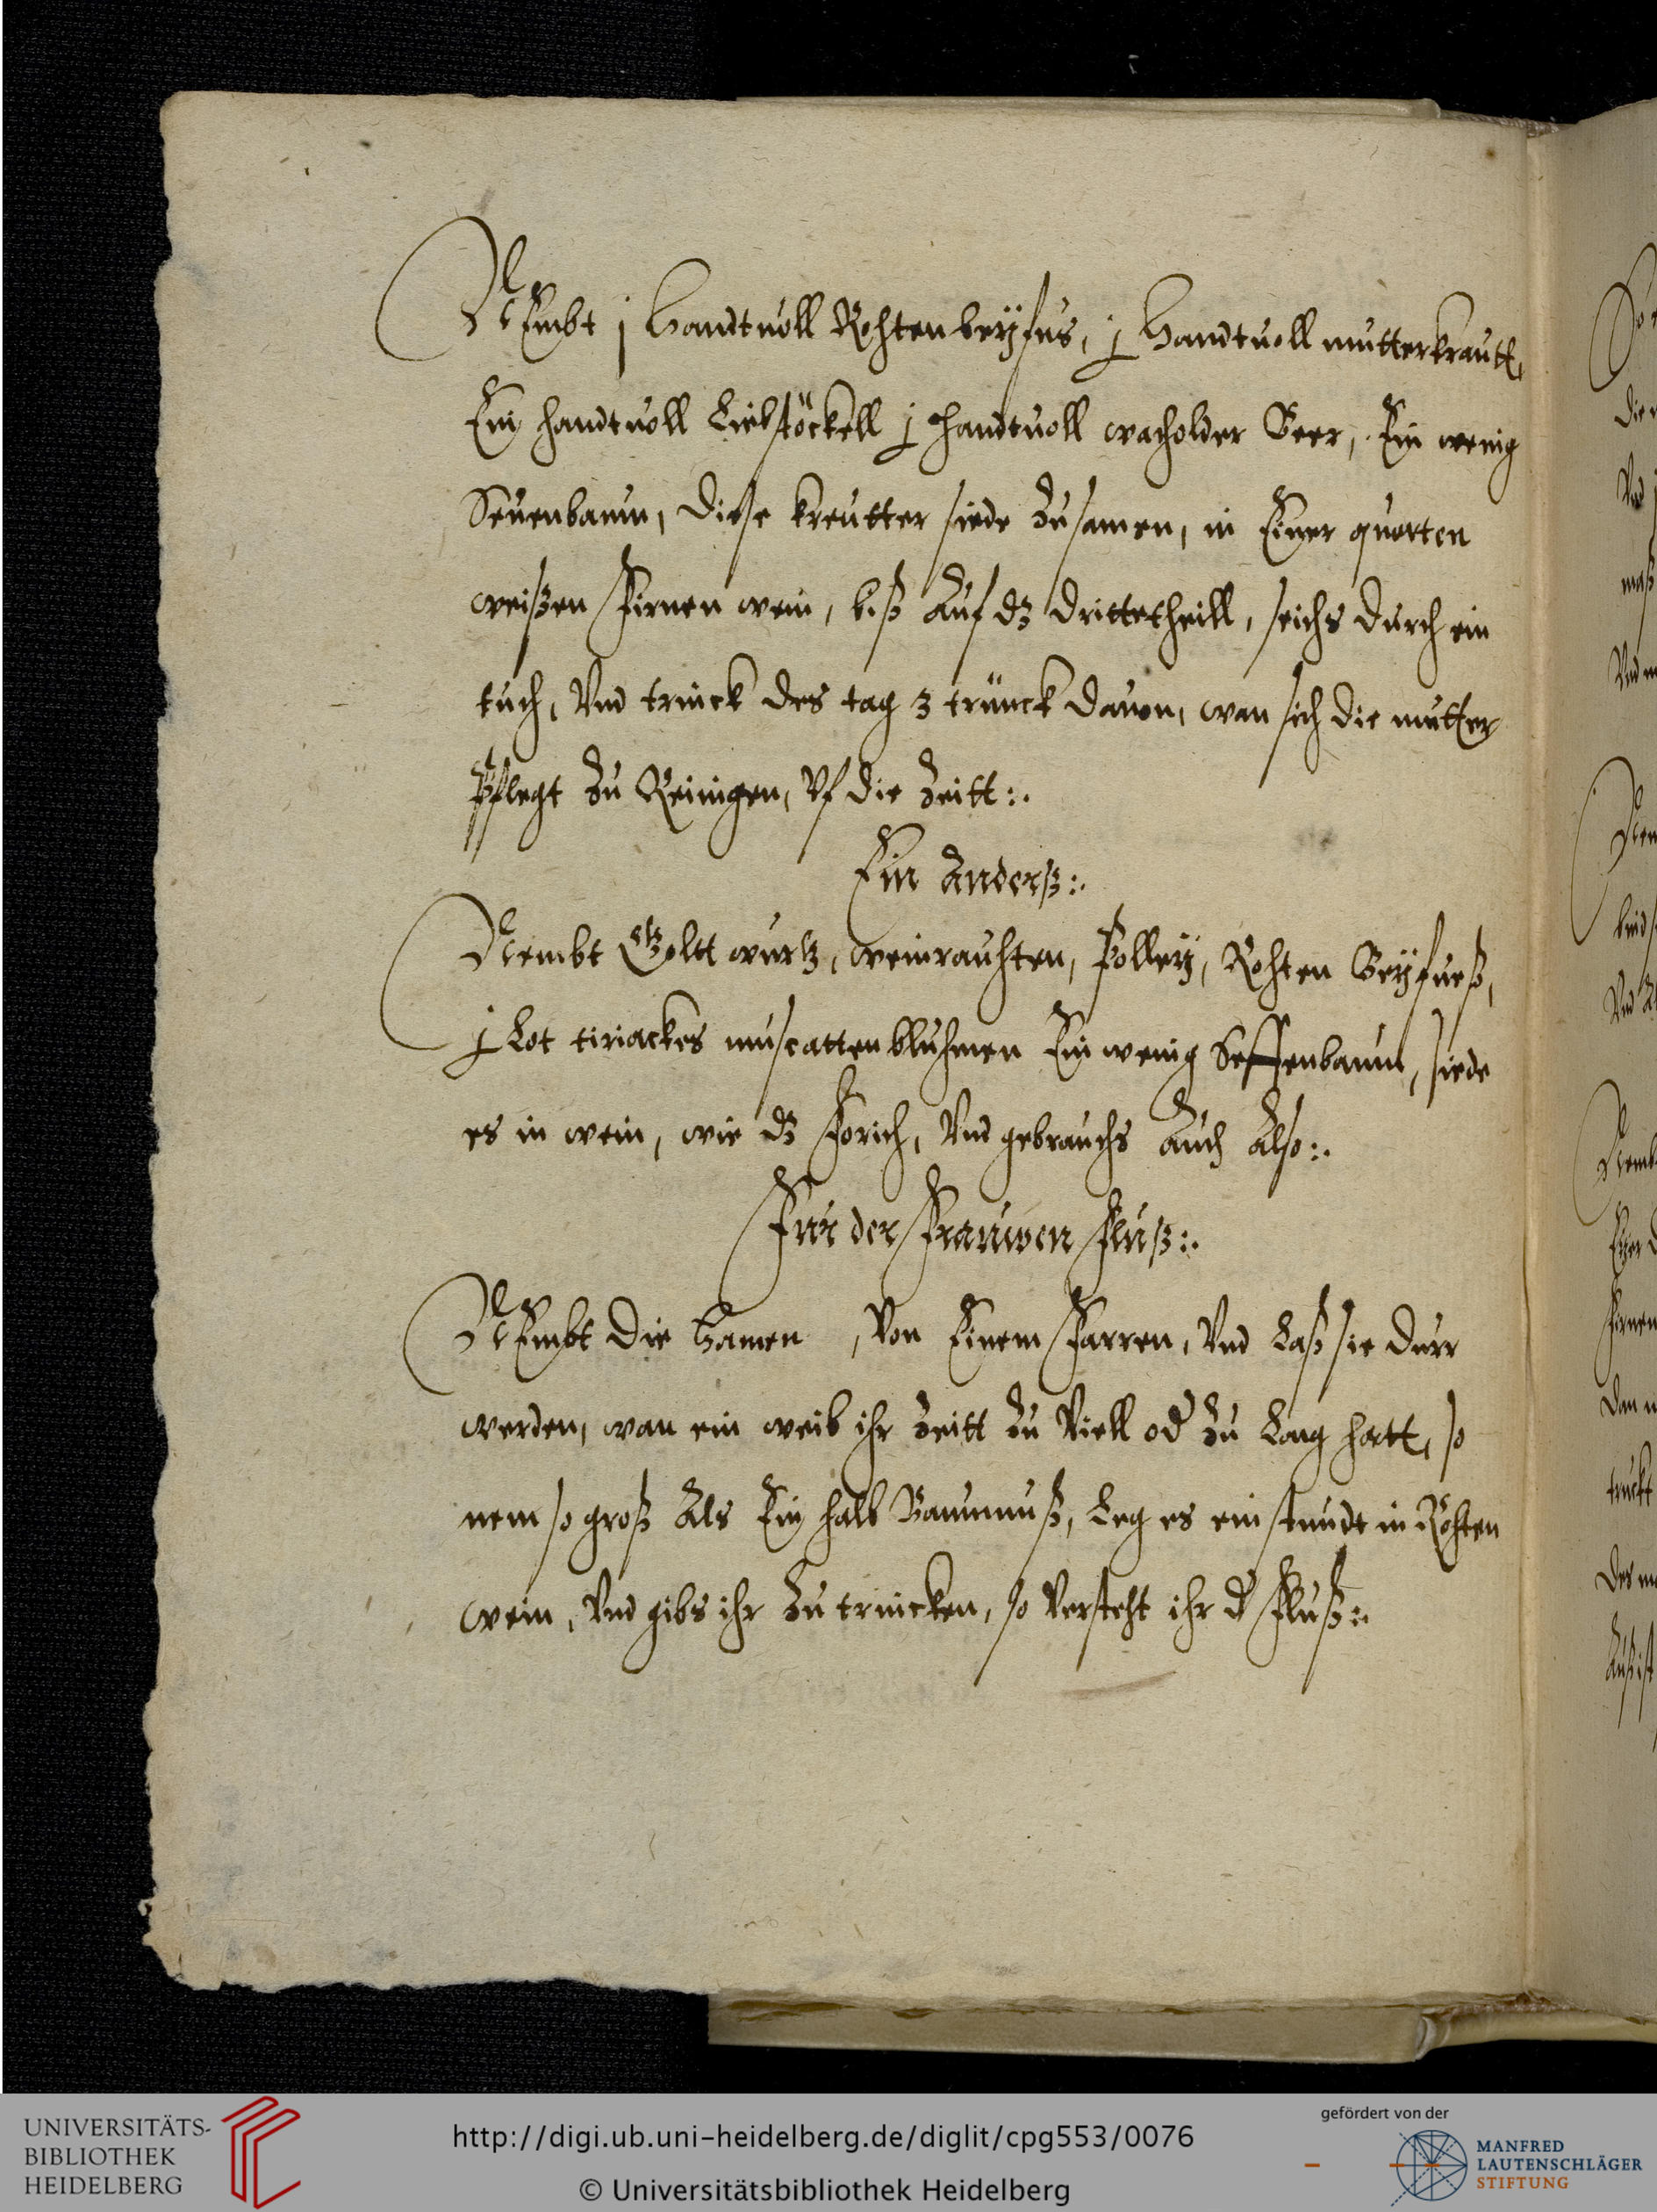 NEmbt j Handtuoll Rohten beÿfus, j Handtuoll mutterkrautt,
Ein handtuoll Liebstöckell j handtuoll wacholder Beer, Ein wenig
Seuenbaum, diese kreutter siede zusamen, in Einer quarten
weißen Firnen wein, biß auf dz drittetheill, seichs durch ein
tuch, Vnd trinck des tag 3 trünck dauon, wan sich die mutter
Pflegt zu Reinigen, Vf die Zeitt :.
Ein Anderß :.
Nembt Goltt wurtz, weinrauhten, Polleÿ, Rohten Beÿfueß,
j Lot tiriackes muscatten bluhmen Ein wenig Seffenbaum, siede
es in wein, wie dz Forich, Vnd gebrauchs auch Also :.
Fur der Frauwen Fluß :.
NEmbt die Hamen , Von Einem Farren, Vnd Laß sie durr
werden, wan ein weib ihr Zeitt zu Viell od zu Lang hatt, so
nem so groß Als Ein halb Baumnuß, Leg es ein stundt in Rohten
wein, Vnd gibs ihr zu trincken, so Versteht ihr d Fluß :.
UNIVERSITÄTS-
BIBLIOTHEK
HEIDELBERG
http://digi.ub.uni-heidelberg.de/diglit/cpg553/0076
© Universitätsbibliothek Heidelberg
gefördert von der
MANFRED
LAUTENSCHLÄGER
STIFTUNG